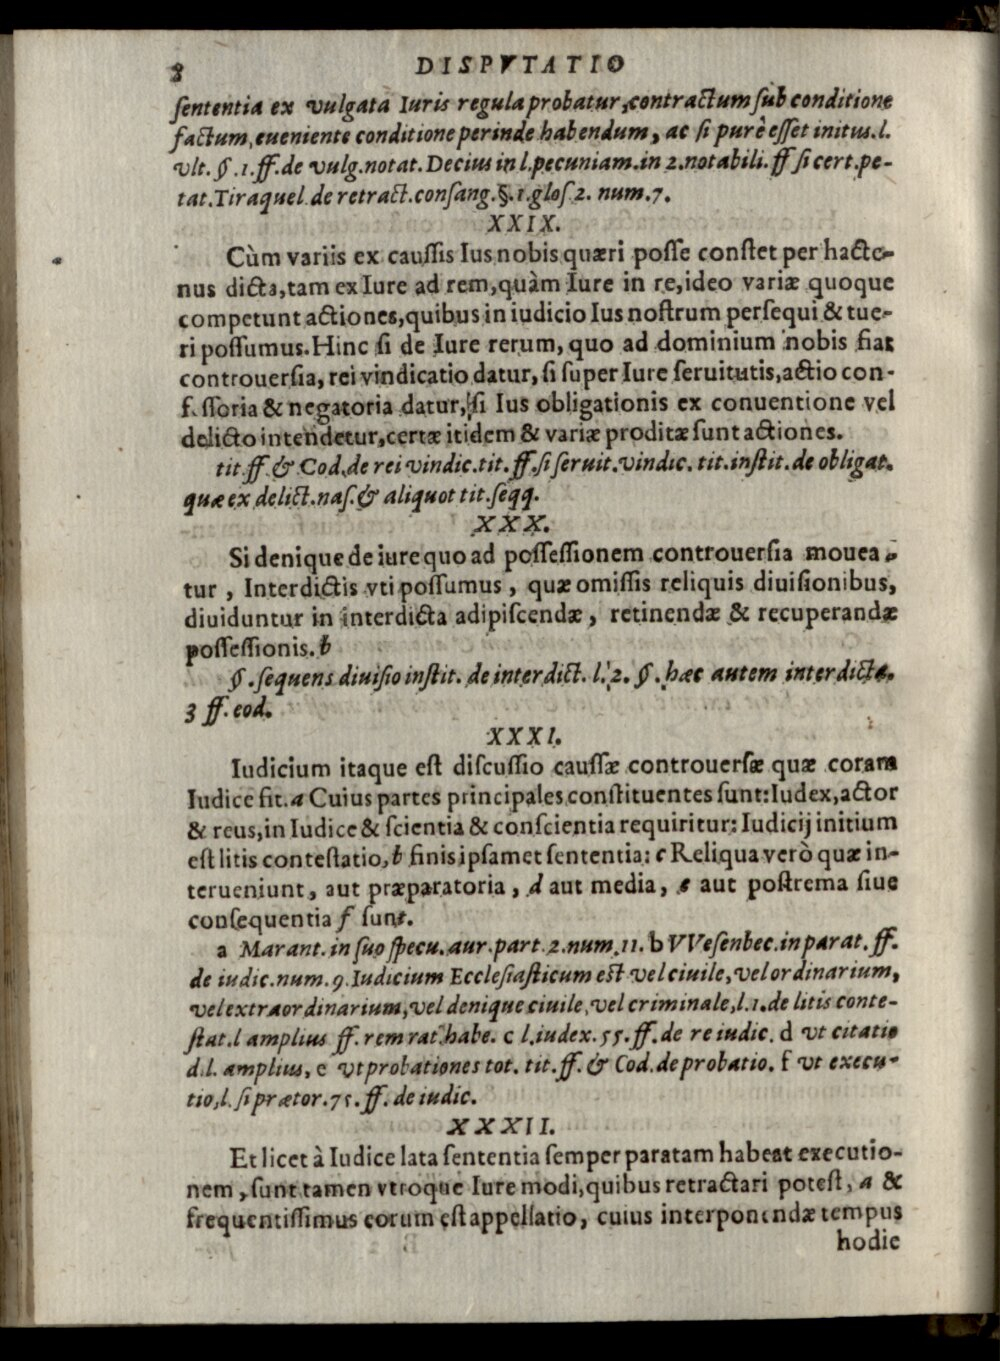 8 DISPVTATIO
sententia ex vulgata Iuris regula probatur, contractum sub conditione
factum, eueniente conditione perinde habendum, ac si purè esset initus. l.
vlt. §. 1. ff. de vulg. notat. Decius in l. pecuniam. in 2. notabili. ff si cert. pe-
tat. Tiraquel de retract. consang. §. 1. glos 2. num. 7.
XXIX.
Cùm variis ex caussis Ius nobis quæri posse constet per hacte-
nus dicta, tam ex Iure ad rem, quàm Iure in re, ideo variæ quoque
competunt actiones, quibus in iudicio Ius nostrum persequi & tue-
ri possumus. Hinc si de Iure rerum, quo ad dominium nobis fiat
controuersia, rei vindicatio datur, si super Iure seruitutis, actio con-
fessoria & negatoria datur, si Ius obligationis ex conuentione vel
delicto intendetur, certæ itidem & variæ proditæ sunt actiones.
tit. ff. & Cod. de rei vindic. tit. ff. si seruit. vindic. tit. instit. de obligat.
quæ ex delict. nas. & aliquot tit. seqq.
XXX.
Si denique de iure quo ad possessionem controuersia mouea-
tur, Interdictis vti possumus, quæ omissis reliquis diuisionibus,
diuiduntur in interdicta adipiscendæ, retinendæ & recuperandæ
possessionis. b
§. sequens diuisio instit. de interdict. l. 2. §. hæc autem interdicta.
3 ff. eod.
XXXI.
Iudicium itaque est discussio caussæ controuersæ quæ coram
Iudice fit. a Cuius partes principales constituentes sunt: Iudex, actor
& reus, in Iudice & scientia & conscientia requiritur: Iudicij initium
est litis contestatio, b finis ipsamet sententia: c Reliqua verò quæ in-
terueniunt, aut præparatoria, d aut media, e aut postrema siue
consequentia f sunt.
a Marant. in suo specu. aur. part. 2. num. 11. b VVesenbec. in parat. ff.
de iudic. num. 9. Iudicium Ecclesiasticum est vel ciuile, vel ordinarium,
vel extraordinarium, vel denique ciuile, vel criminale, l. 1. de litis conte-
stat. l amplius ff. rem rat. habe. c l. iudex. 55. ff. de re iudic. d vt citatio
d. l. amplius, e vt probationes tot. tit. ff. & Cod. de probatio. f vt execu-
tio, l. si prætor. 75. ff. de iudic.
XXXII.
Et licet à Iudice lata sententia semper paratam habeat executio-
nem, sunt tamen vtroque Iure modi, quibus retractari potest, a &
frequentissimus eorum est appellatio, cuius interponendæ tempus
hodie